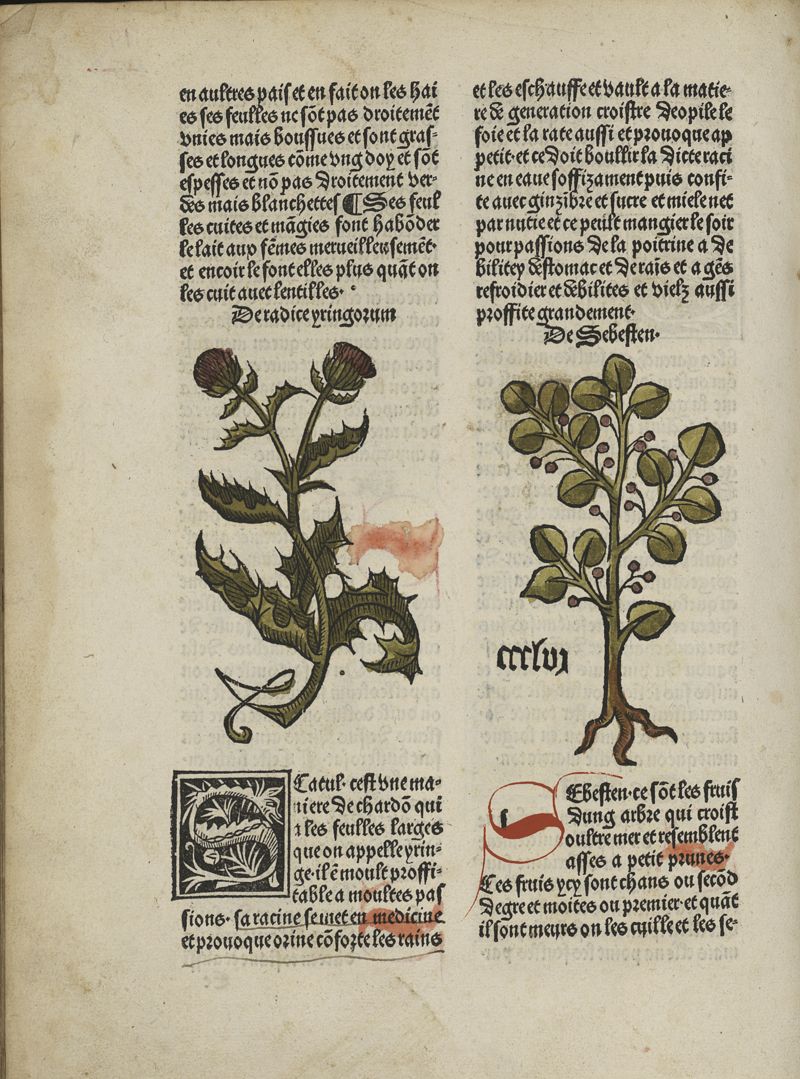 en aultres pais et en fait on les hai
es ses feulles ne sõt pas droitemẽt
vnies mais boussues et sont gras-
ses et longues cõme vng doy et sõt
espesses et nõ pas droitement ver-
des mais blanchettes ¶ Ses feul
les cuites et mãgies font habõder
le lait aux fẽmes merueilleusemẽt·
et encoir le font elles plus quãt on
les cuit auec lentilles·
De radice yringorum
SCatul· cest vne ma-
niere de chardõ qui
a les feulles larges
que on appelle yrin-
ge· il ẽ moult proffi-
table a moultes pas
sions· sa racine se met en medicine
et prouoque orine cõforte les rains
et les eschauffe et vault a la matie-
re de generation croistre Deopile le
foie et la rate aussi et prouoque ap
petit· et ce doit boullir la dicte raci
ne en eaue soffizament puis confi-
te auec ginzibre et sucre et miele net
par nutie et ce peult mangier le soir
pour passions de la poitrine a de
bilitey destomac et de raĩs et a gẽs
refroidier et debilites et vielz aussi
proffite grandement·
De Sebesten·
ccclvj
SEbesten· ce sõt les fruis
dung arbre qui croist
oultre mer et resemblent
asses a petit prunes·
Ces fruis ycy sont chans ou secõd
degre et moites ou premier· et quãt
il sont meurs on les cuille et les se-